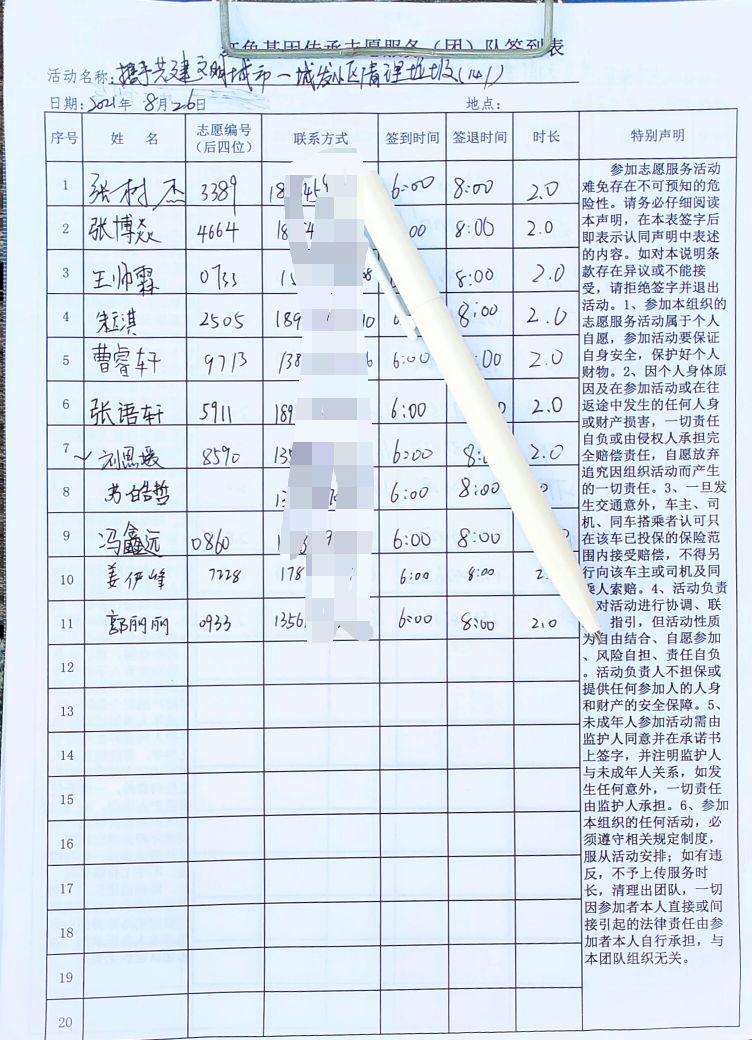 红色基因传承志愿服务(团)队签到表
活动名称:携手共建文明城市一城发小区清理垃圾(141)
日期:2021年 8月26日 地点:
序号 姓 名 志愿编号(后四位) 联系方式 签到时间 签退时间 时长 特别声明
1 张树杰 3389 18 6:00 8:00 2.0
2 张博焱 4664 18 00 8:00 2.0
3 王帅霖 0733 8:00 2.0
4 淇 2505 189 8:00 2.0
5 曹睿轩 9713 138 6:00 :00 2.0
6 张语轩 5911 189 6:00 2.0
7 刘思媛 8590 135 6:00 8: 2.0
8 皓哲 6:00 8:00
9 冯鑫远 0860 6:00 8:00
10 姜伊峰 7228 178 6:00 8:00 2.
11 郭丽丽 0933 1356 6:00 8:00 2.0
12
13
14
15
16
17
18
19
20
参加志愿服务活动
难免存在不可预知的危
险性。请务必仔细阅读
本声明,在本表签字后
即表示认同声明中表述
的内容。如对本说明条
款存在异议或不能接
受,请拒绝签字并退出
活动。1、参加本组织的
志愿服务活动属于个人
自愿,参加活动要保证
自身安全,保护好个人
财物。2、因个人身体原
因及在参加活动或在往
返途中发生的任何人身
或财产损害,一切责任
自负或由侵权人承担完
全赔偿责任,自愿放弃
追究因组织活动而产生
的一切责任。3、一旦发
生交通意外,车主、司
机、同车搭乘者认可只
在该车已投保的保险范
围内接受赔偿,不得另
行向该车主或司机及同
乘人索赔。4、活动负责
对活动进行协调、联
指引,但活动性质
为自由结合、自愿参加
、风险自担、责任自负
。活动负责人不担保或
提供任何参加人的人身
和财产的安全保障。5、
未成年人参加活动需由
监护人同意并在承诺书
上签字,并注明监护人
与未成年人关系,如发
生任何意外,一切责任
由监护人承担。6、参加
本组织的任何活动,必
须遵守相关规定制度,
服从活动安排;如有违
反,不予上传服务时
长,清理出团队,一切
因参加者本人直接或间
接引起的法律责任由参
加者本人自行承担,与
本团队组织无关。